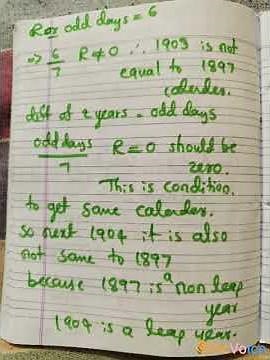 odd days = 6
⇒ 6/7 R≠0 ∴ 1903 is not
equal to 1897
calender.
diff of 2 years = odd days
odd days/7 R=0 should be
zero.
This is condition.
to get same calender.
so next 1904 it is also
not same to 1897
because 1897 is a non leap
year
1904 is a leap year.